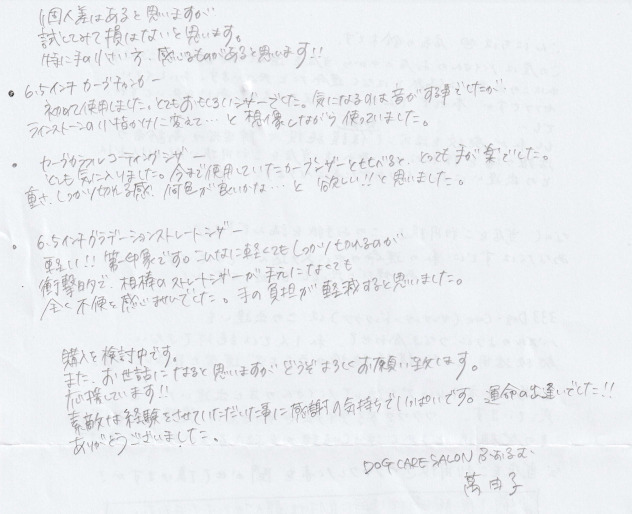 個人差はあると思いますが
試してみて損はないと思います。
特に手の小さい方、感じるものがあると思います!!
• 6.5インチ カーブチャンカー
初めて使用しました。とてもおもしろいシザーでした。気になるのは音がする事でしたが
ラインストーンの 変えて…と 想像しながら 使っていました。
• カーブカラーコーティングシザー
とても気に入りました。今まで使用していたカーブシザーとくらべると、とっても手が楽でした。
重さ、しっかり切れる感、何色が良いかな…と 欲しい!!と思いました。
• 6.5インチグラデーションストレートシザー
軽い!! 第一印象です。こんなに軽くてもしっかり切れるのが
衝撃的で、相棒のストレートシザーが手元になくても
全く不便を感じませんでした。手の負担が軽減すると思いました。
購入を検討中です。
また、お世話になると思いますがどうぞよろしくお願い致します。
応援しています!!
素敵な経験をさせていただいた事に感謝の気持ちでいっぱいです。運命の出逢いでした!!
ありがとうございました。
DOG CARE SALON ふぉるむ